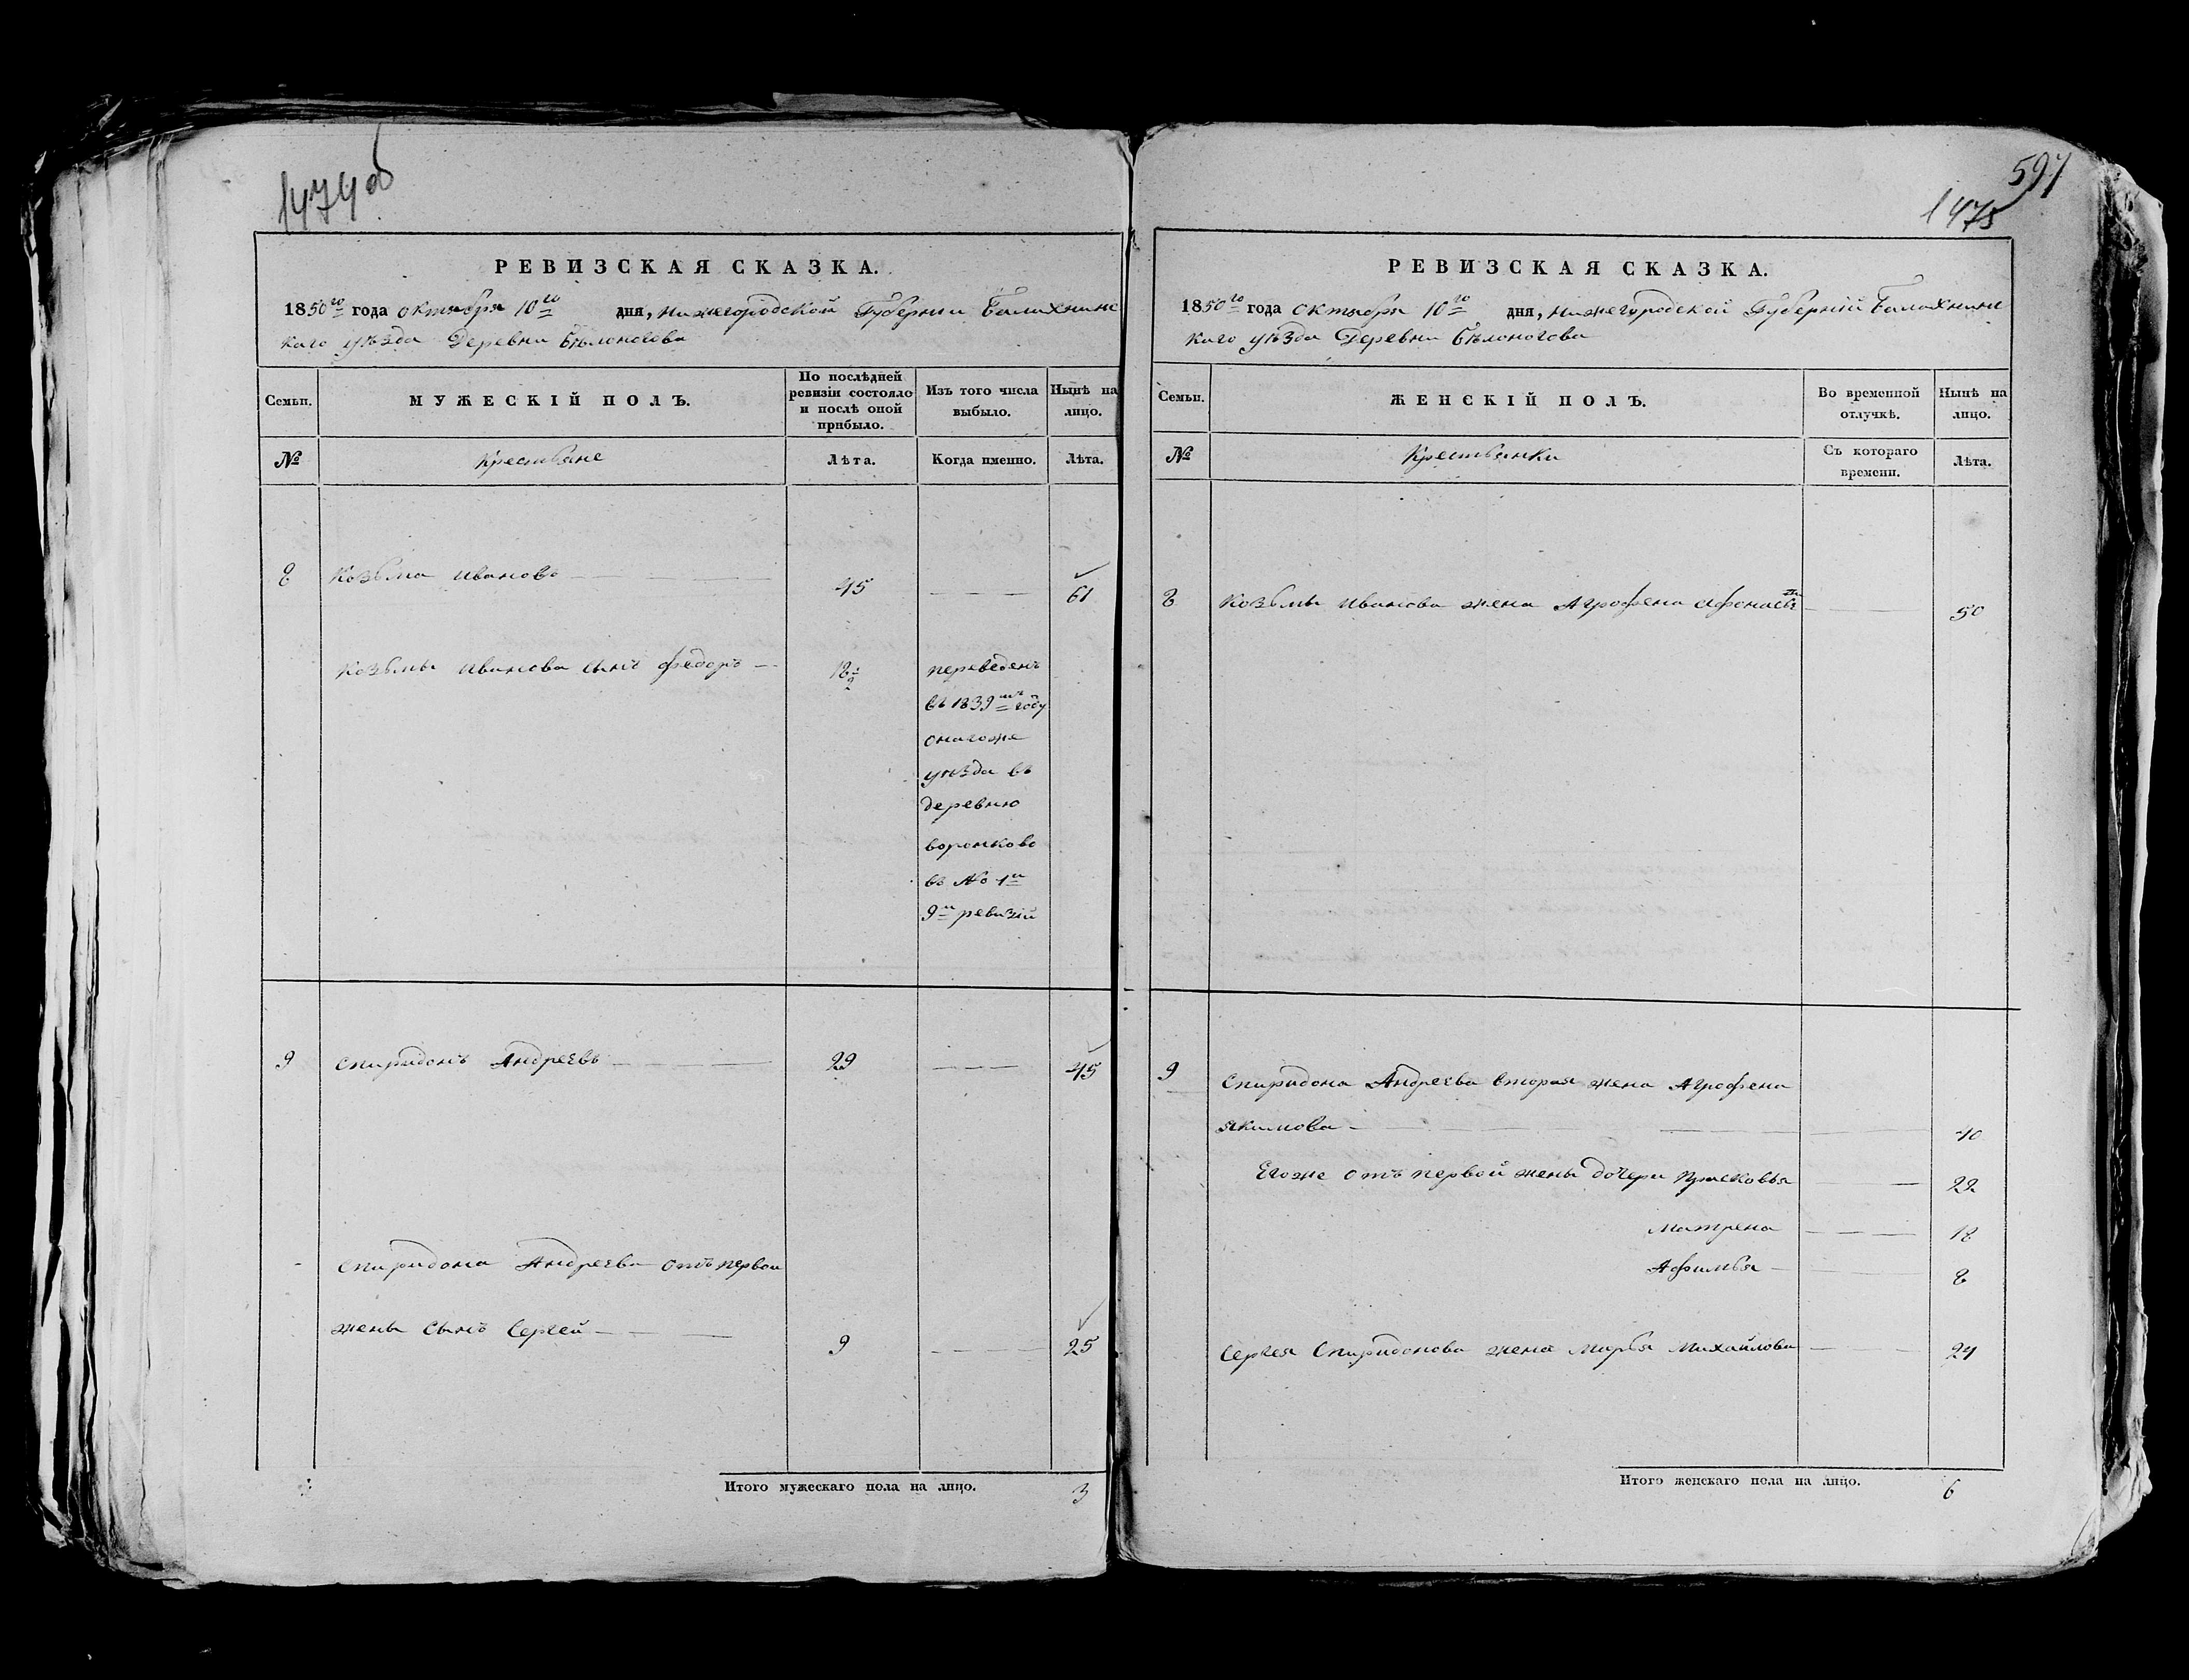 1474 об
РЕВИЗСКАЯ СКАЗКА.
1850го года октября 10го дня, Нижегородской Губернии Балахнинс
каго уѣзда Деревни Бѣлоногова
Семьи.
МУЖЕСКІЙ ПОЛЪ.
По послѣдней ревизіи состояло и послѣ оной прибыло.
Изъ того числа выбыло.
Нынѣ на лицо.
№
Крестьяне
Лѣта.
Когда именно.
Лѣта.
8 Козьма Ивановъ 45 61
Козьмы Иванова сынъ Федоръ 18 1/2 переведенъ
въ 1839мъ году
онагоже
уѣзда въ
деревню
Воронково
въ № 1й
9й ревизіи
9 Спиридонъ Андреевъ 29 45
Спиридона Андреева отъ первой
жены сынъ Сергей 9 25
Итого мужескаго пола на лицо. 3
597
1475
РЕВИЗСКАЯ СКАЗКА.
1850го года октября 10го дня, Нижегородской Губерніи Балахнинс
каго уѣзда Деревни Бѣлоногова
Семьи.
ЖЕНСКІЙ ПОЛЪ.
Во временной отлучкѣ.
Нынѣ на лицо.
№
Крестьянки
Съ котораго времени.
Лѣта.
8 Козьмы Иванова жена Аграфена Афонасьева 50
9 Спиридона Андреева вторая жена Аграфена
Якимова 40
Егоже отъ первой жены дочери Прасковья 22
Матрена 18
Афимья 8
Сергея Спиридонова жена Марья Михайлова 24
Итого женскаго пола на лицо. 6